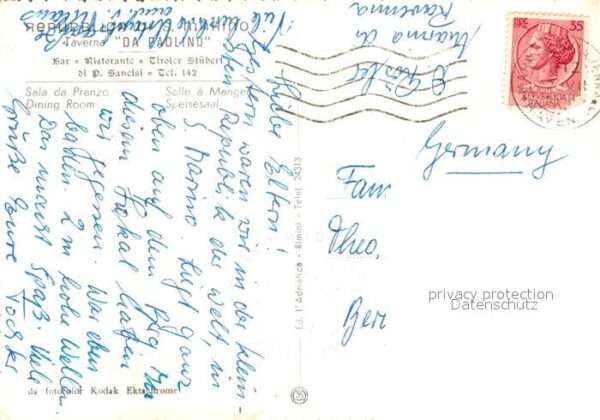 REPUBBLICA DI S. MARINO
Taverna "DA PAOLINO"
Bar - Ristorante - Tiroler Stüberl
di P. Sancisi - Tel. 142
Sala da Pranzo
Salle à Manger
Dining Room
Speisesaal
Liebe Eltern!
Gestern waren wir in der klein-
sten Republik der Welt, in
S. Marino. Liegt ganz
oben auf dem Berg. In
diesem Lokal haben
wir gegessen. War eben
baden. 2 m hohe Wellen
Das macht Spaß. Viele
Grüße Eure Tochter
Viele
Marina di
Ravenna
Germany
Fam.
Theo,
Ber
LIRE 35
REPVBBLICA
ITALIANA
Ed. L'Adriatica - Rimini - Telef. 24313
da fotocolor Kodak Ektachrome
privacy protection
Datenschutz